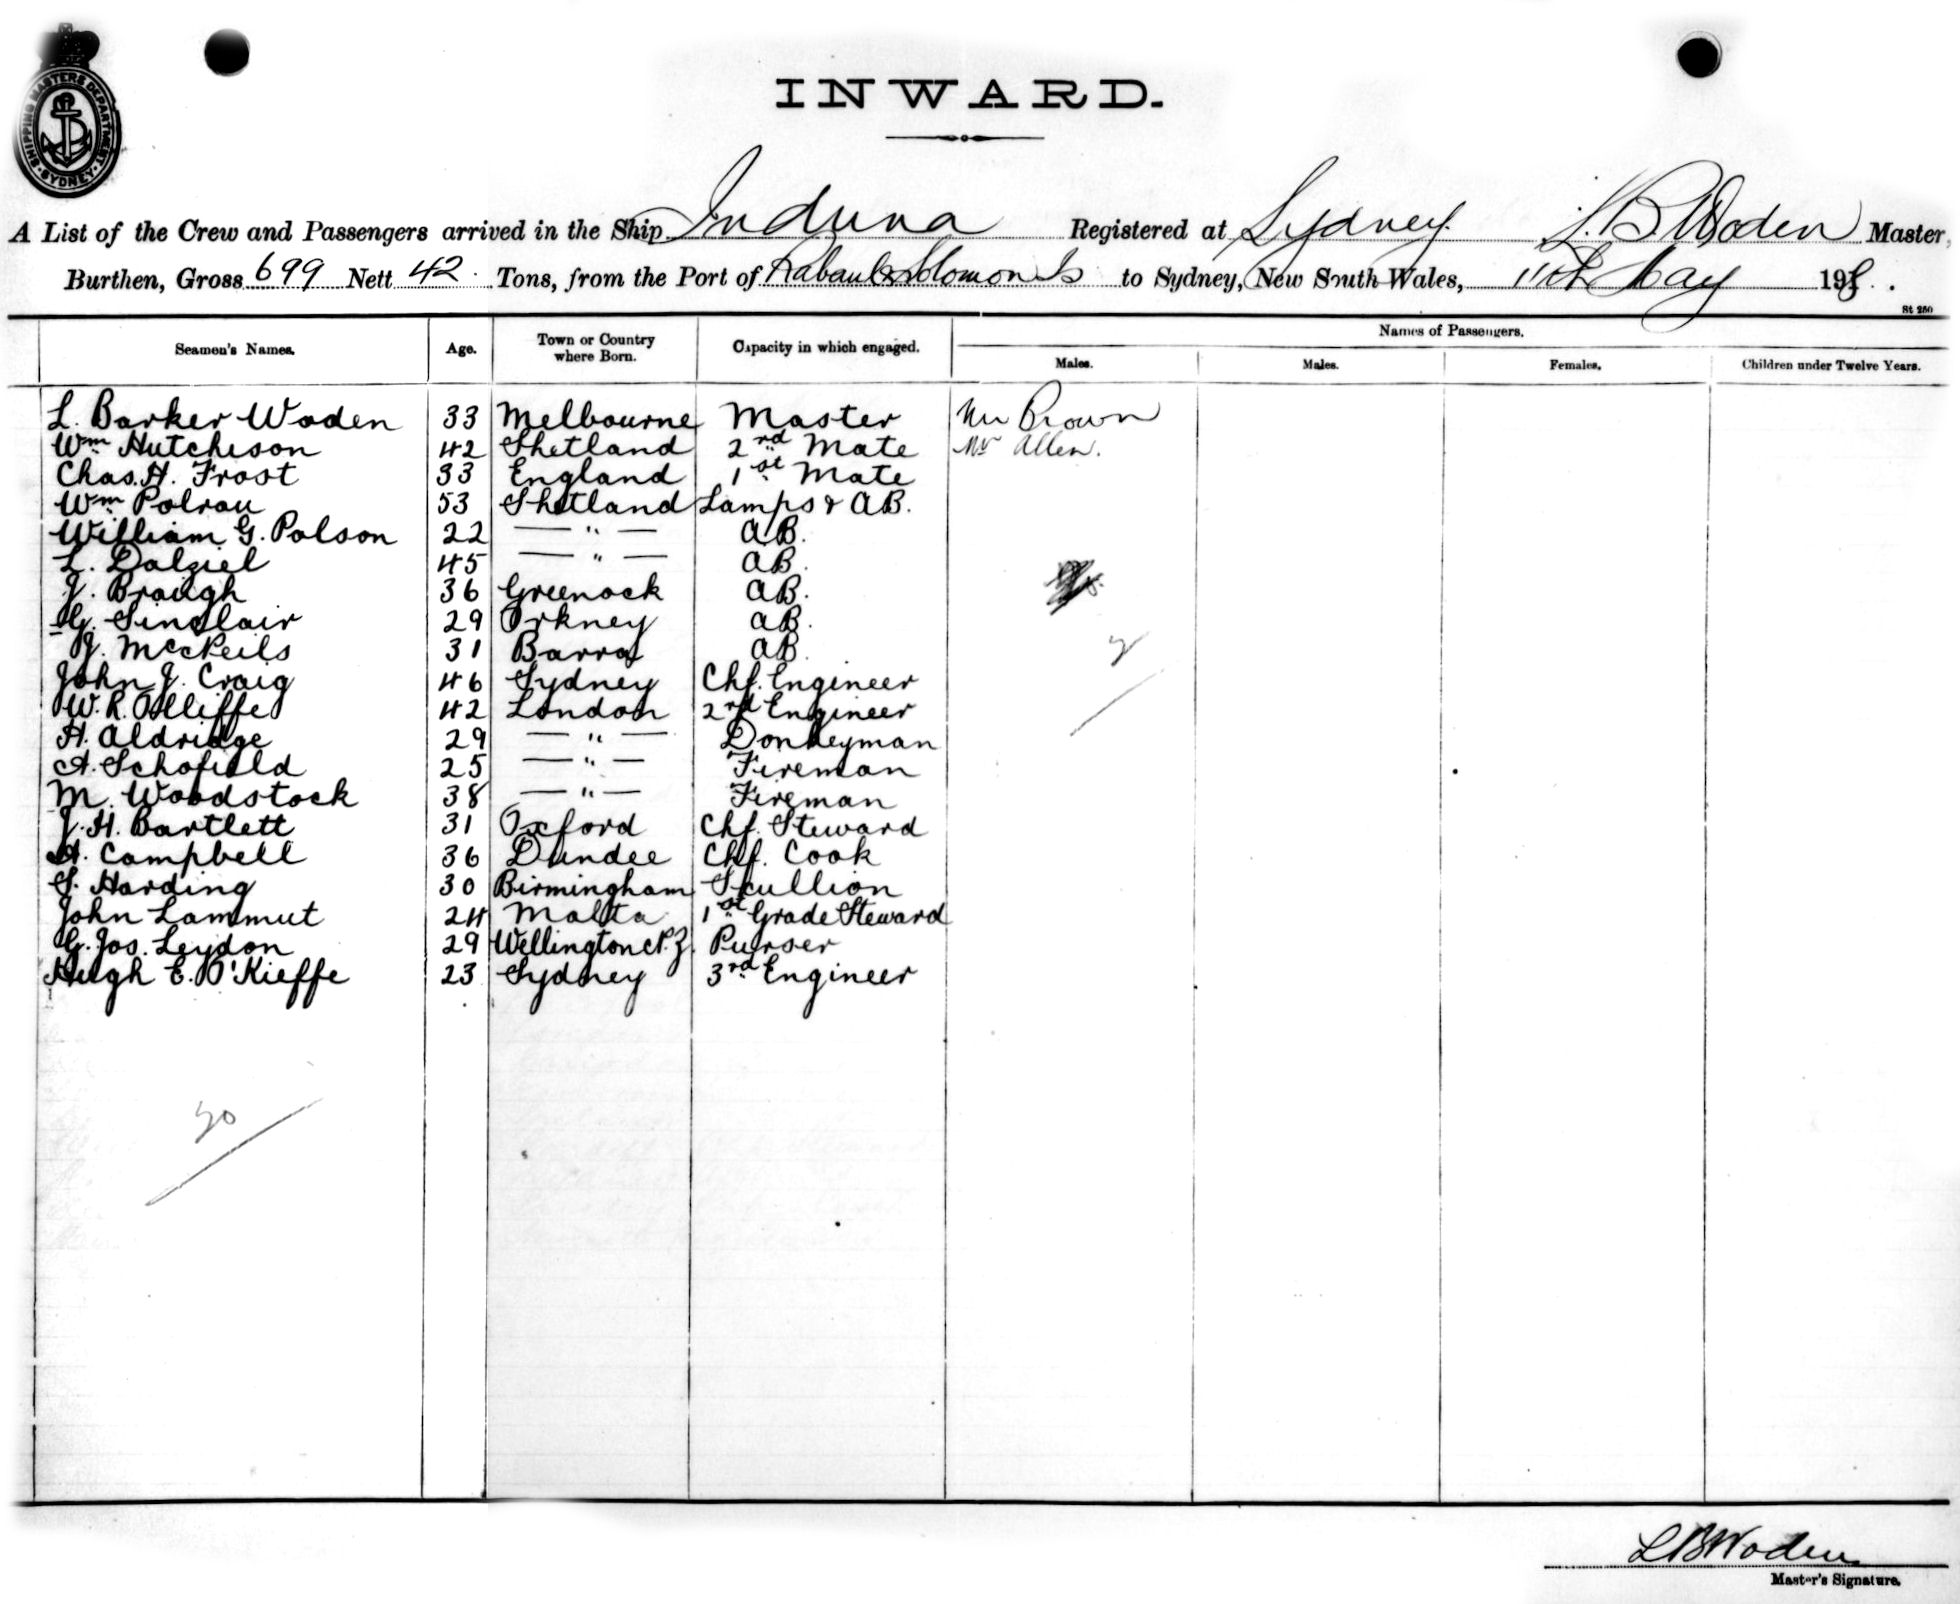 SHIPPING MASTERS DEPARTMENT SYDNEY
INWARD.
A List of the Crew and Passengers arrived in the Ship Induna Registered at Sydney L. B. Woden Master,
Burthen, Gross 699 Nett 42 Tons, from the Port of Rabaul & Solomon Is to Sydney, New South Wales, 11th May 191
St 250
Seamen's Names. Age. Town or Country where Born. Capacity in which engaged. Names of Passengers.
Males. Males. Females. Children under Twelve Years.
L. Barker Woden 33 Melbourne Master Mr Brown
Wm Hutchison 42 Shetland 2nd Mate Mr Allen.
Chas. H. Frost 33 England 1st Mate
Wm 53 Shetland Lamps & AB.
William G. Polson 22 — " — AB.
L. Dalziel 45 — " — AB.
J. Braugh 36 Greenock AB.
G. Sinclair 29 Orkney AB.
J. 31 Barra AB
2
John J. Craig 46 Sydney Chf. Engineer
W. R. Olliffe 42 London 2nd Engineer
H. Aldridge 29 — " — Donkeyman
A. Schofield 25 — " — Fireman
M. Woodstock 38 — " — Fireman
J. H. Bartlett 31 Oxford Chf. Steward
A. Campbell 36 Dundee Chf. Cook
S. Harding 30 Birmingham Scullion
John Lammut 24 Malta 1st Grade Steward
G. Jos. Leydon 29 Wellington N.Z. Purser
Hugh E. O'Kieffe 23 Sydney 3rd Engineer
20
L B Woden
Master's Signature.